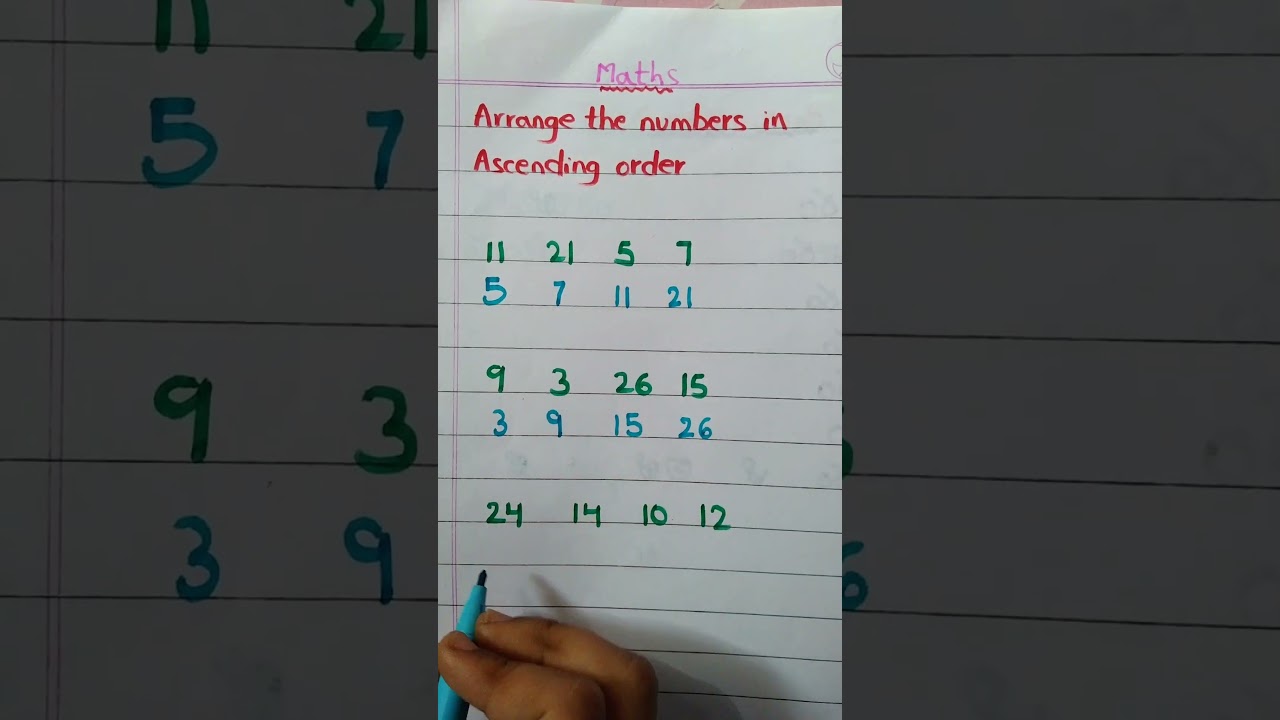 Maths
Arrange the numbers in
Ascending order
11 21 5 7
5 7 11 21
9 3 26 15
3 9 15 26
24 14 10 12